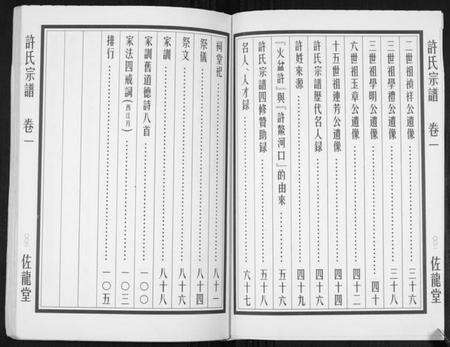 許氏宗譜 卷一
二世祖禎祥公遺像……三十六
三世祖學禮公遺像……三十八
三世祖學明公遺像……四十
六世祖玉章公遺像……四十二
十五世祖連芳公遺像……四十四
許氏宗譜歷代名人録……四十六
許姓來源……四十九
『火盆許』與『許鰲河口』的由來……五十六
許氏宗譜四修贊助録……五十八
名人、人才録……六十七
佐龍堂
祠堂記……八十一
祭儀……八十四
祭文……八十六
家訓……八十八
家訓舊道德詩八首……一〇〇
家法四戒詞(西江月)……一〇三
排行……一〇五
許氏宗譜 卷一
佐龍堂